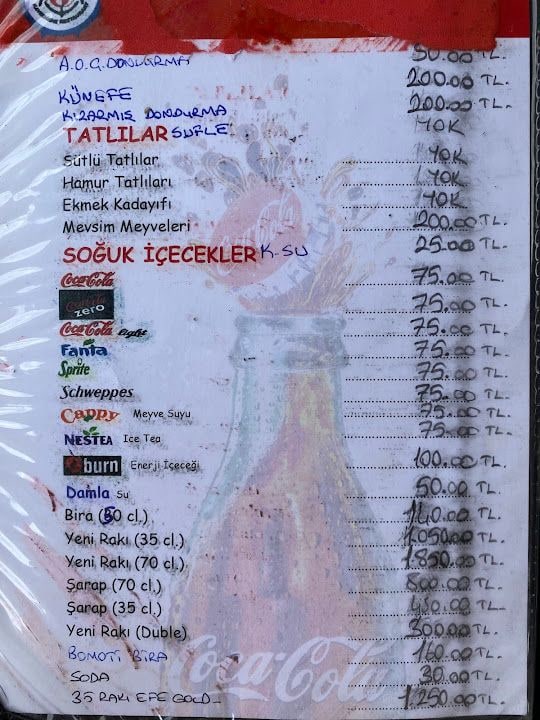 A.O.Ç. DONDURMA 50.00 TL.
KÜNEFE 200.00 TL.
KIZARMIŞ DONDURMA 200.00 TL.
TATLILAR SUFLE YOK
Sütlü Tatlılar YOK
Hamur Tatlıları YOK
Ekmek Kadayıfı YOK
Mevsim Meyveleri 200.00 TL.
SOĞUK İÇECEKLER K.SU 25.00 TL.
Coca-Cola 75.00 TL.
Coca-Cola zero 75.00 TL.
Coca-Cola light 75.00 TL.
Fanta 75.00 TL.
Sprite 75.00 TL.
Schweppes 75.00 TL.
Cappy Meyve Suyu 75.00 TL.
NESTEA Ice Tea 75.00 TL.
burn Enerji İçeceği 100.00 TL.
Damla Su 50.00 TL.
Bira (50 cl.) 140.00 TL.
Yeni Rakı (35 cl.) 1.050.00 TL.
Yeni Rakı (70 cl.) 1.850.00 TL.
Şarap (70 cl.) 800.00 TL.
Şarap (35 cl.) 450.00 TL.
Yeni Rakı (Duble) 300.00 TL.
BOMOTİ BİRA 160.00 TL.
SODA 30.00 TL.
35 RAKI EFE GOLD 1.250.00 TL.
Coca-Cola